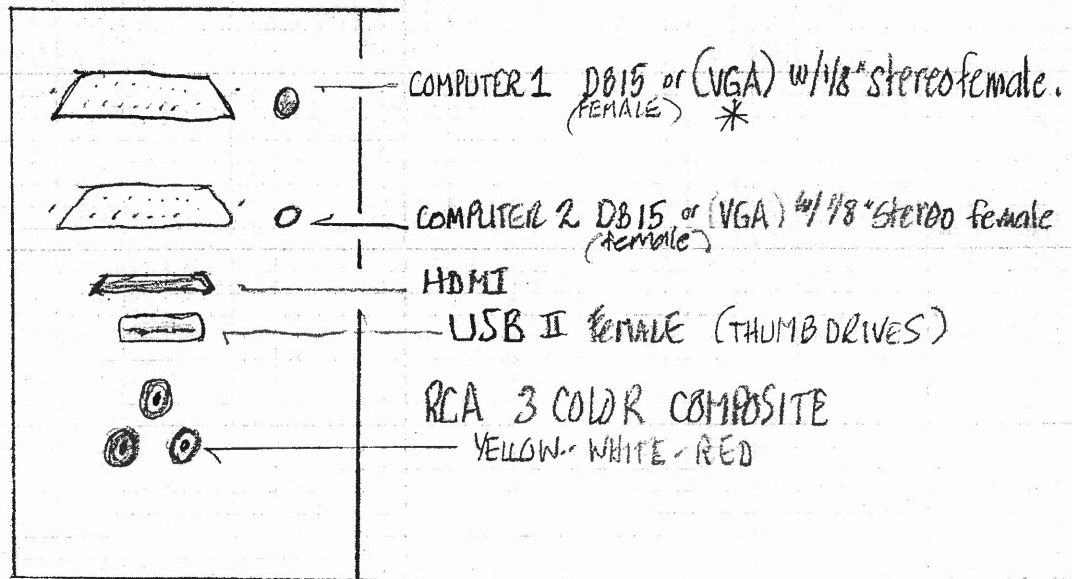 COMPUTER 1 DB15 or (VGA) w/1/8" stereo female.
(FEMALE) *
COMPUTER 2 DB15 or (VGA) w/ 1/8" stereo female
(female)
HDMI
USB II FEMALE (THUMB DRIVES)
RCA 3 COLOR COMPOSITE
YELLOW - WHITE - RED